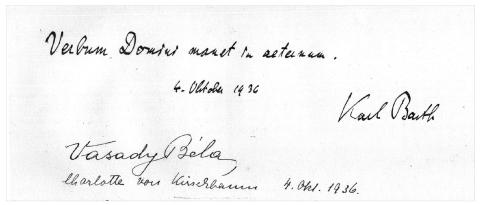 Verbum Domini manet in aeternum.
4. Oktober 1936
Karl Barth
Vasady Béla
Charlotte von Kirschbaum 4. Okt. 1936.